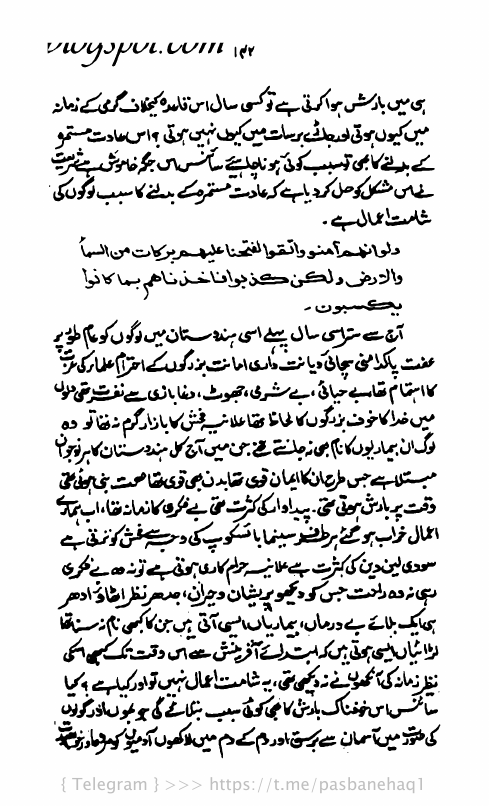 blogspot.com ۱۴۲
ہی میں بارش ہوا کرتی ہے تو کسی سال اس قاعدہ کیخلاف گرمی کے زمانہ
میں کیوں ہوتی اور جاڑے برسات میں کیوں نہیں ہوتی ؟ اس عادت مستمرہ
کے بدلنے کا بھی تو سبب کوئی ہونا چاہئیے سائنس اس جگہ خاموش ہے شریعت
نے اس مشکل کو حل کر دیا ہے کہ عادت مستمرہ کے بدلنے کا سبب لوگوں کی
شامت اعمال ہے ۔
ولوانھم آمنو واتقوا لفتحنا علیھم برکات من السمأ
والارض ولکن کذبوا فاخذناھم بما کانوا
یکسبون ۔
آج سے ستر اسی سال پہلے اسی ہندوستان میں لوگوں کو عام طور پر
عفت پاکدامنی سچائی دیانت داری امانت بزرگوں کے احترام علمار کی عزت
کا اہتمام تھا بے حیائی ، بے شرمی ، جھوٹ ، دغا بازی سے نفرت تھی دلوں
میں خدا کا خوف بزرگوں کا لحاظ تھا علانیہ فحش کا بازار گرم نہ تھا تو وہ
لوگ ان بیماریوں کا نام بھی نہ جانتے تھے جن میں آج کل ہندوستان کا ہر نوجوان
مبتلا ہے جس طرح ان کا ایمان قوی تھا بدن بھی قوی تھا صحت بنی ہوئی تھی
وقت پر بارش ہوتی تھی ۔ پیداوار کی کثرت تھی بے فکری کا زمانہ تھا ، اب ہمارے
اعمال خراب ہو گئے ہر طرف سینما بائسکوپ کی وجہ سے فحش کو ترقی ہے
سودی لین دین کی کثرت ہے علانیہ حرام کاری ہوتی ہے تو نہ وہ بے فکری
رہی نہ وہ راحت جس کو دیکھو پریشان وحیران ، جدھر نظر اٹھاؤ ادھر
ہی ایک بلائے بے درماں ، بیماریاں ایسی آتی ہیں جن کا کبھی نام نہ سنا تھا
لڑائیاں ایسی ہوتی ہیں کہ ابتدائے آفرینش سے اس وقت تک کبھی اسکی
نظیر زمانہ کی آنکھوں نے نہ دیکھی تھی ، یہ شامت اعمال نہیں تو اور کیا ہے ؟ کیا
سائنس اس خوفناک بارش کا بھی کوئی سبب بتلائے گی جو بموں اور گولوں
کی صورت میں آسمان سے برستی اور دم کے دم میں لاکھوں آدمیوں کو مردہ اور
{ Telegram } >>> https://t.me/pasbanehaq1